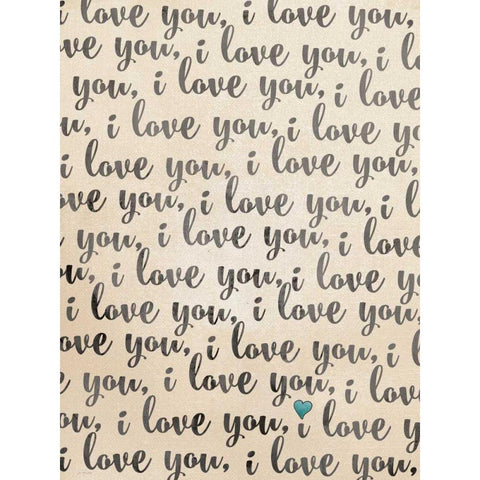 i love you, i love you,
ove you, i love you, i l
you, i love you, i love
u, i love you, i love yo
i love you, i love you,
ove you, i love you, i l
you, i love you, i love
ou, i love you, i love y
i love you, i love you,
ove you, i love you, i l
e you, i love you, i love
ou, i love you, i love y
i love you, i love you,